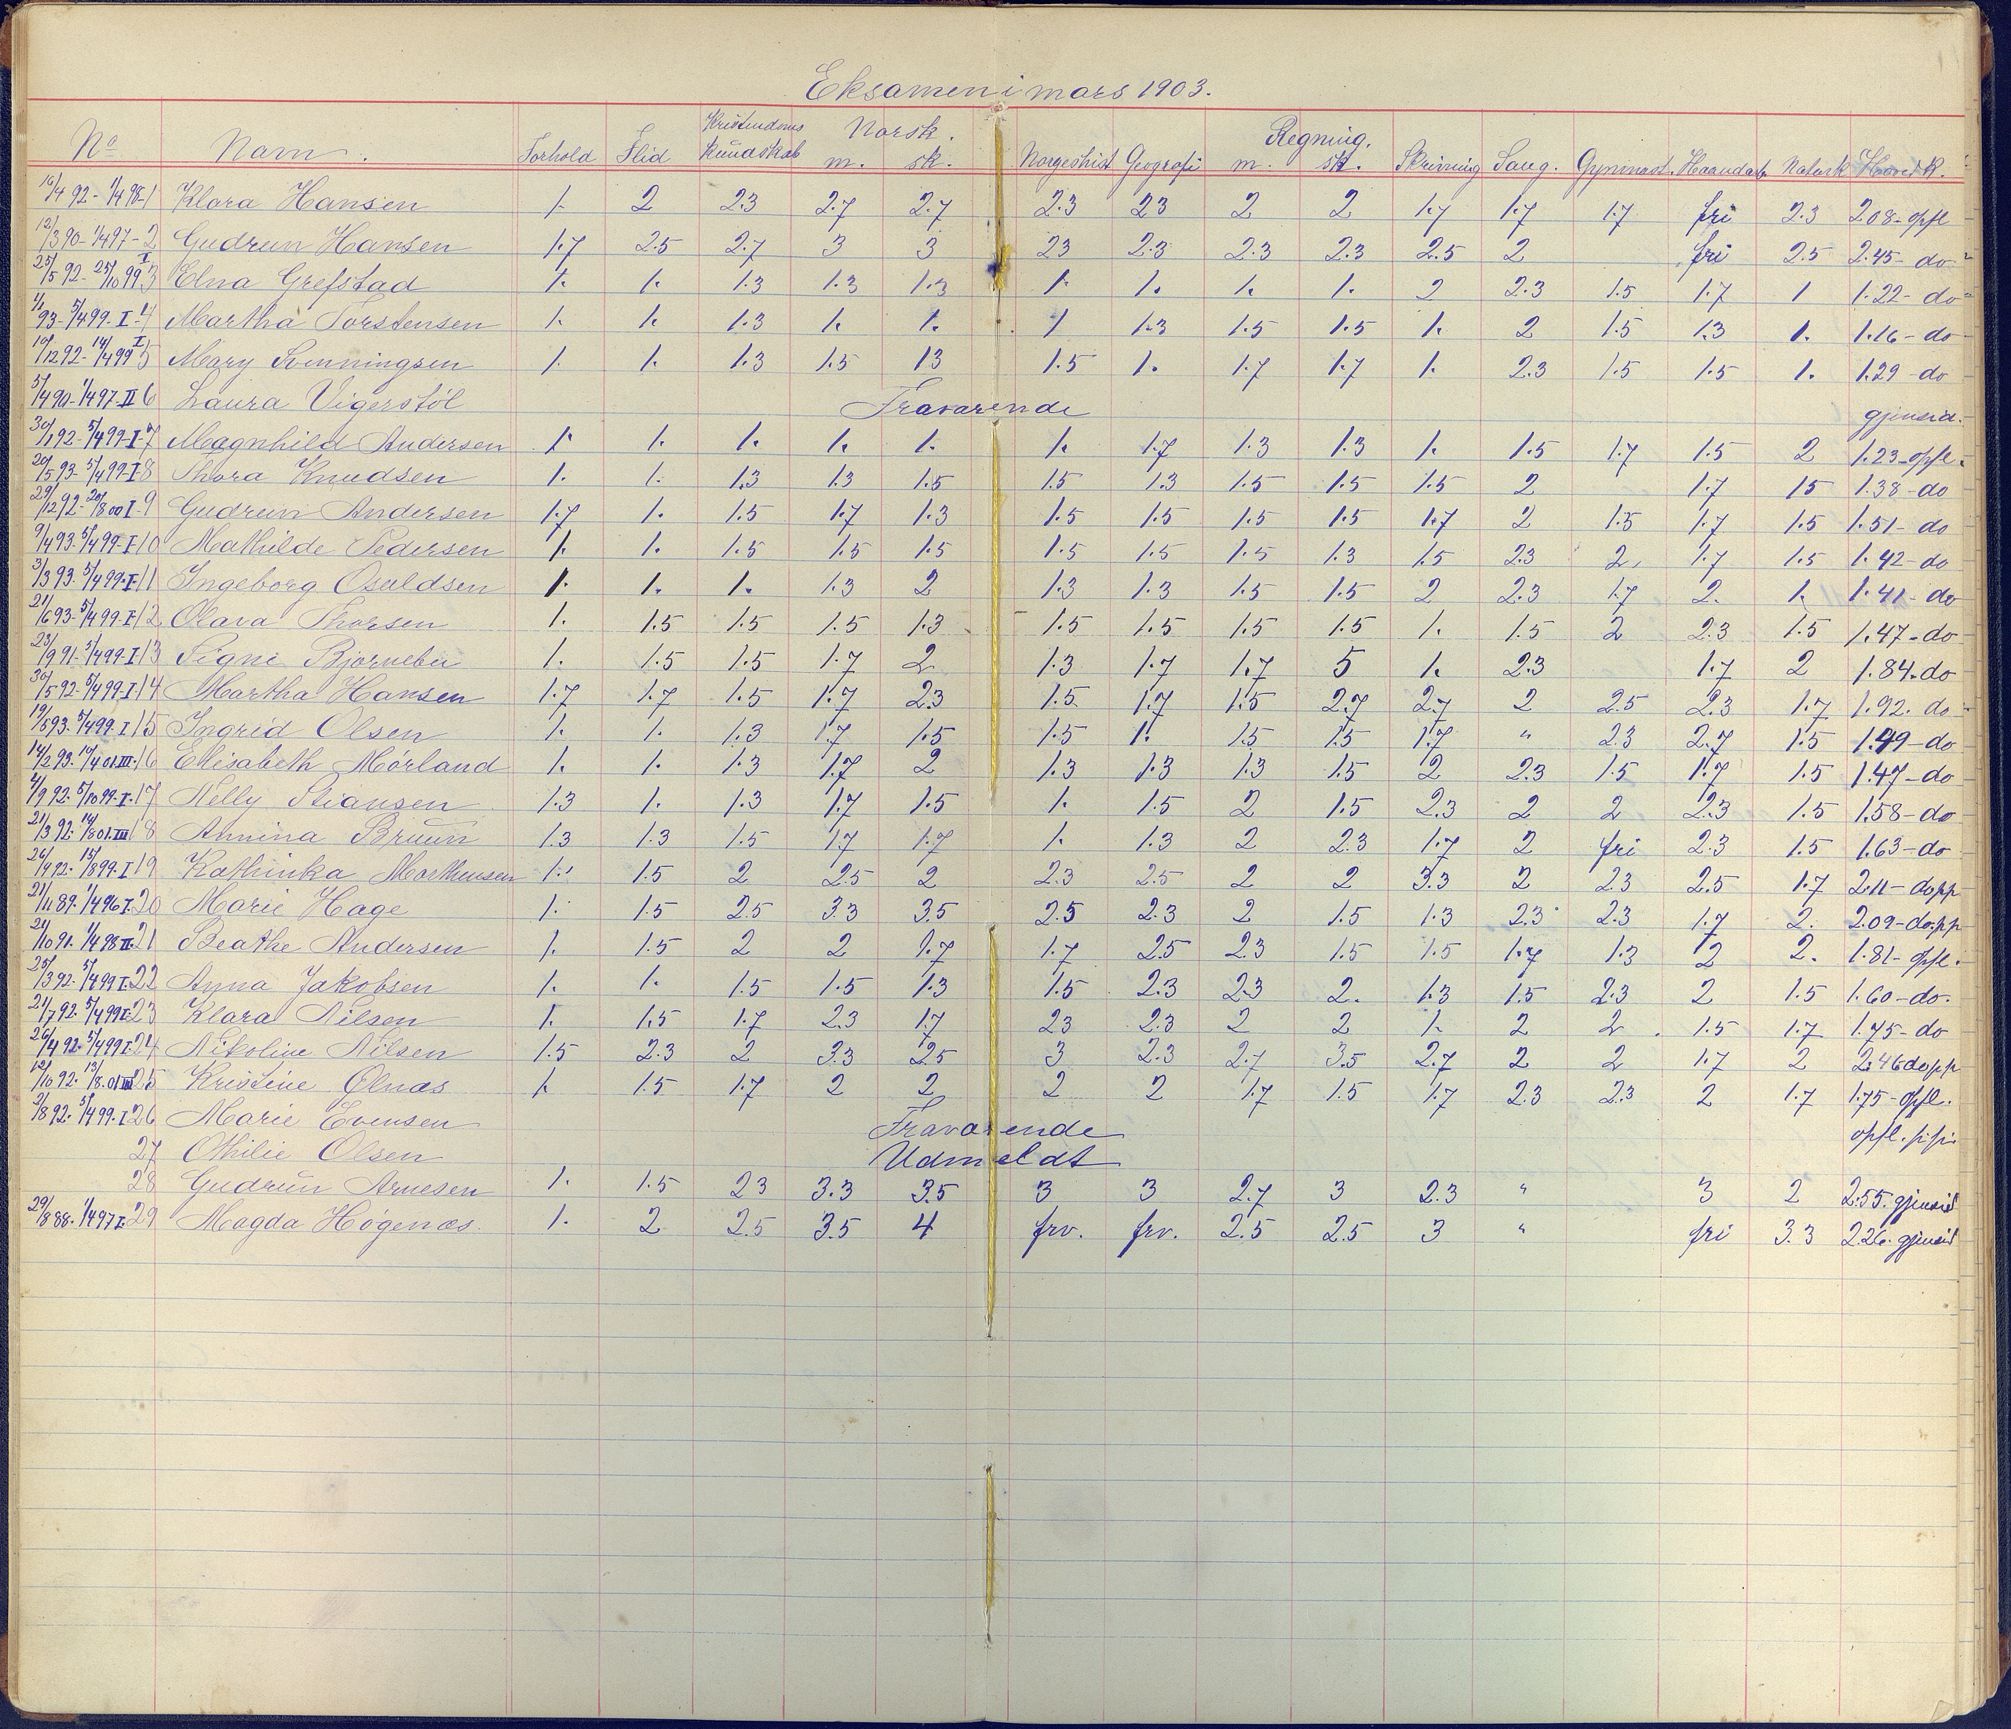 Eksamen i mars 1903.
No Navn. Forhold Flid Kristendoms Kundskab Norsk. m. sk. Norgeshist Geografi Regning. m. sk. Skrivning Sang. Gymnast. Haandarb. Naturk Hoved K.
16/4 92 - 1/4 98 - 1 Klara Hansen 1. 2 2.3 2.7 2.7 2.3 2.3 2 2 1.7 1.7 1.7 fri 2.3 2.08 - opfl
12/3 90 - 1/4 97 - 2 Gudrun Hansen 1.7 2.5 2.7 3 3 2.3 2.3 2.3 2.3 2.5 2 fri 2.5 2.45 - do
25/5 92 - 25/10 99 I 3 Elna Grefstad 1. 1. 1.3 1.3 1.3 1. 1. 1. 1. 2 2.3 1.5 1.7 1 1.22 - do
93 - 5/4 99. I - 4 Martha Torstensen 1. 1. 1.3 1. 1. 1 1.3 1.5 1.5 1. 2 1.5 1.3 1. 1.16 - do
19/12 92 - 14/4 99 I 5 Mary Svenningsen 1. 1. 1.3 1.5 1.3 1.5 1. 1.7 1.7 1. 2.3 1.5 1.5 1. 1.29 - do
5/4 90 - 1/4 97 - II 6 Laura Vigerstöl Fraværende gjensid.
30/1 92 - 5/4 99 - I - 7 Magnhild Andersen 1. 1. 1. 1. 1. 1. 1.7 1.3 1.3 1. 1.5 1.7 1.5 2 1.23 - opfl.
20/5 93 - 5/4 99 - I - 8 Thora Knudsen 1. 1. 1.3 1.3 1.5 1.5 1.3 1.5 1.5 1.5 2 1.7 1.5 1.38 - do
29/12 92 - 20/8 00 I - 9 Gudrun Andersen 1.7 1. 1.5 1.7 1.3 1.5 1.5 1.5 1.5 1.7 2 1.5 1.7 1.5 1.51 - do
9/4 93 - 5/4 99 - I - 10 Mathilde Pedersen 1. 1. 1.5 1.5 1.5 1.5 1.5 1.5 1.3 1.5 2.3 2. 1.7 1.5 1.42 - do
3/3 93 - 5/4 99 - I - 11 Ingeborg Osuldsen 1. 1. 1. 1.3 2 1.3 1.3 1.5 1.5 2 2.3 1.7 2. 1. 1.41 - do
21/6 93 - 5/4 99 - I - 12 Olava Thorsen 1. 1.5 1.5 1.5 1.3 1.5 1.5 1.5 1.5 1. 1.5 2 2.3 1.5 1.47 - do
23/9 91 - 5/4 99 - I - 13 Signe Bjorneboe 1. 1.5 1.5 1.7 2 1.3 1.7 1.7 5 1. 2.3 1.7 2 1.84. do
30/5 92 - 5/4 99 - I - 14 Martha Hansen 1.7 1.7 1.5 1.7 2.3 1.5 1.7 1.5 2.7 2.7 2 2.5 2.3 1.7 1.92. do
19/8 93. 5/4 99. I 15 Ingrid Olsen 1. 1. 1.3 1.7 1.5 1.5 1. 1.5 1.5 1.7 " 2.3 2.7 1.5 1.49 - do
14/2 93. 10/4 01. III. 16 Elisabeth Mörland 1. 1. 1.3 1.7 2 1.3 1.3 1.3 1.5 2 2.3 1.5 1.7 1.5 1.47 - do
4/9 92. 5/10 99. I. 17 Nelly Stiansen 1.3 1. 1.3 1.7 1.5 1. 1.5 2 1.5 2.3 2 2 2.3 1.5 1.58 - do
21/3 92. 14/8 01. III 18 Annina Bruun 1.3 1.3 1.5 1.7 1.7 1. 1.3 2 2.3 1.7 2 fri 2.3 1.5 1.63 - do
26/4 92. 15/8 99. I 19 Kathinka Morthensen 1. 1.5 2 2.5 2 2.3 2.5 2 2 3.3 2 2.3 2.5 1.7 2.11 - do pp
21/11 89. 1/4 96 I. 20 Marie Hage 1. 1.5 2.5 3.3 3.5 2.5 2.3 2 1.5 1.3 2.3 2.3 1.7 2. 2.09 - do. pp
21/10 91. 1/4 98 II. 21 Beathe Andersen 1. 1.5 2 2 1.7 1.7 2.5 2.3 1.5 1.5 1.7 1.3 2 2. 1.81 - opfl.
25/3 92. 5/4 99 I. 22 Anna Jakobsen 1. 1. 1.5 1.5 1.3 1.5 2.3 2.3 2. 1.3 1.5 2.3 2 1.5 1.60 - do.
21/7 92. 5/4 99 I. 23 Klara Nilsen 1. 1.5 1.7 2.3 1.7 2.3 2.3 2 2 1. 2 2. 1.5 1.7 1.75 - do
26/4 92. 5/4 99 I. 24 Nikoline Nilsen 1.5 2.3 2 3.3 2.5 3 2.3 2.7 3.5 2.7 2 2 1.7 2 2.46 do pp
12/10 92. 13/8. 01 III 25 Kristine Olnæs 1. 1.5 1.7 2 2 2 2 1.7 1.5 1.7 2.3 2.3 2 1.7 1.75 - opfl.
2/8 92. 5/4 99. I 26 Marie Evensen Fraværende opfl. p.p.
27 Othilie Olsen Udmeldt
28 Gudrun Arnesen 1. 1.5 2.3 3.3 3.5 3 3 2.7 3 2.3 " 3 2 2.55. gjensid
29/8 88. 1/4 97 I. 29 Magda Högenæs. 1. 2 2.5 3.5 4 frv. frv. 2.5 2.5 3 " fri 3.3 2.26. gjensid